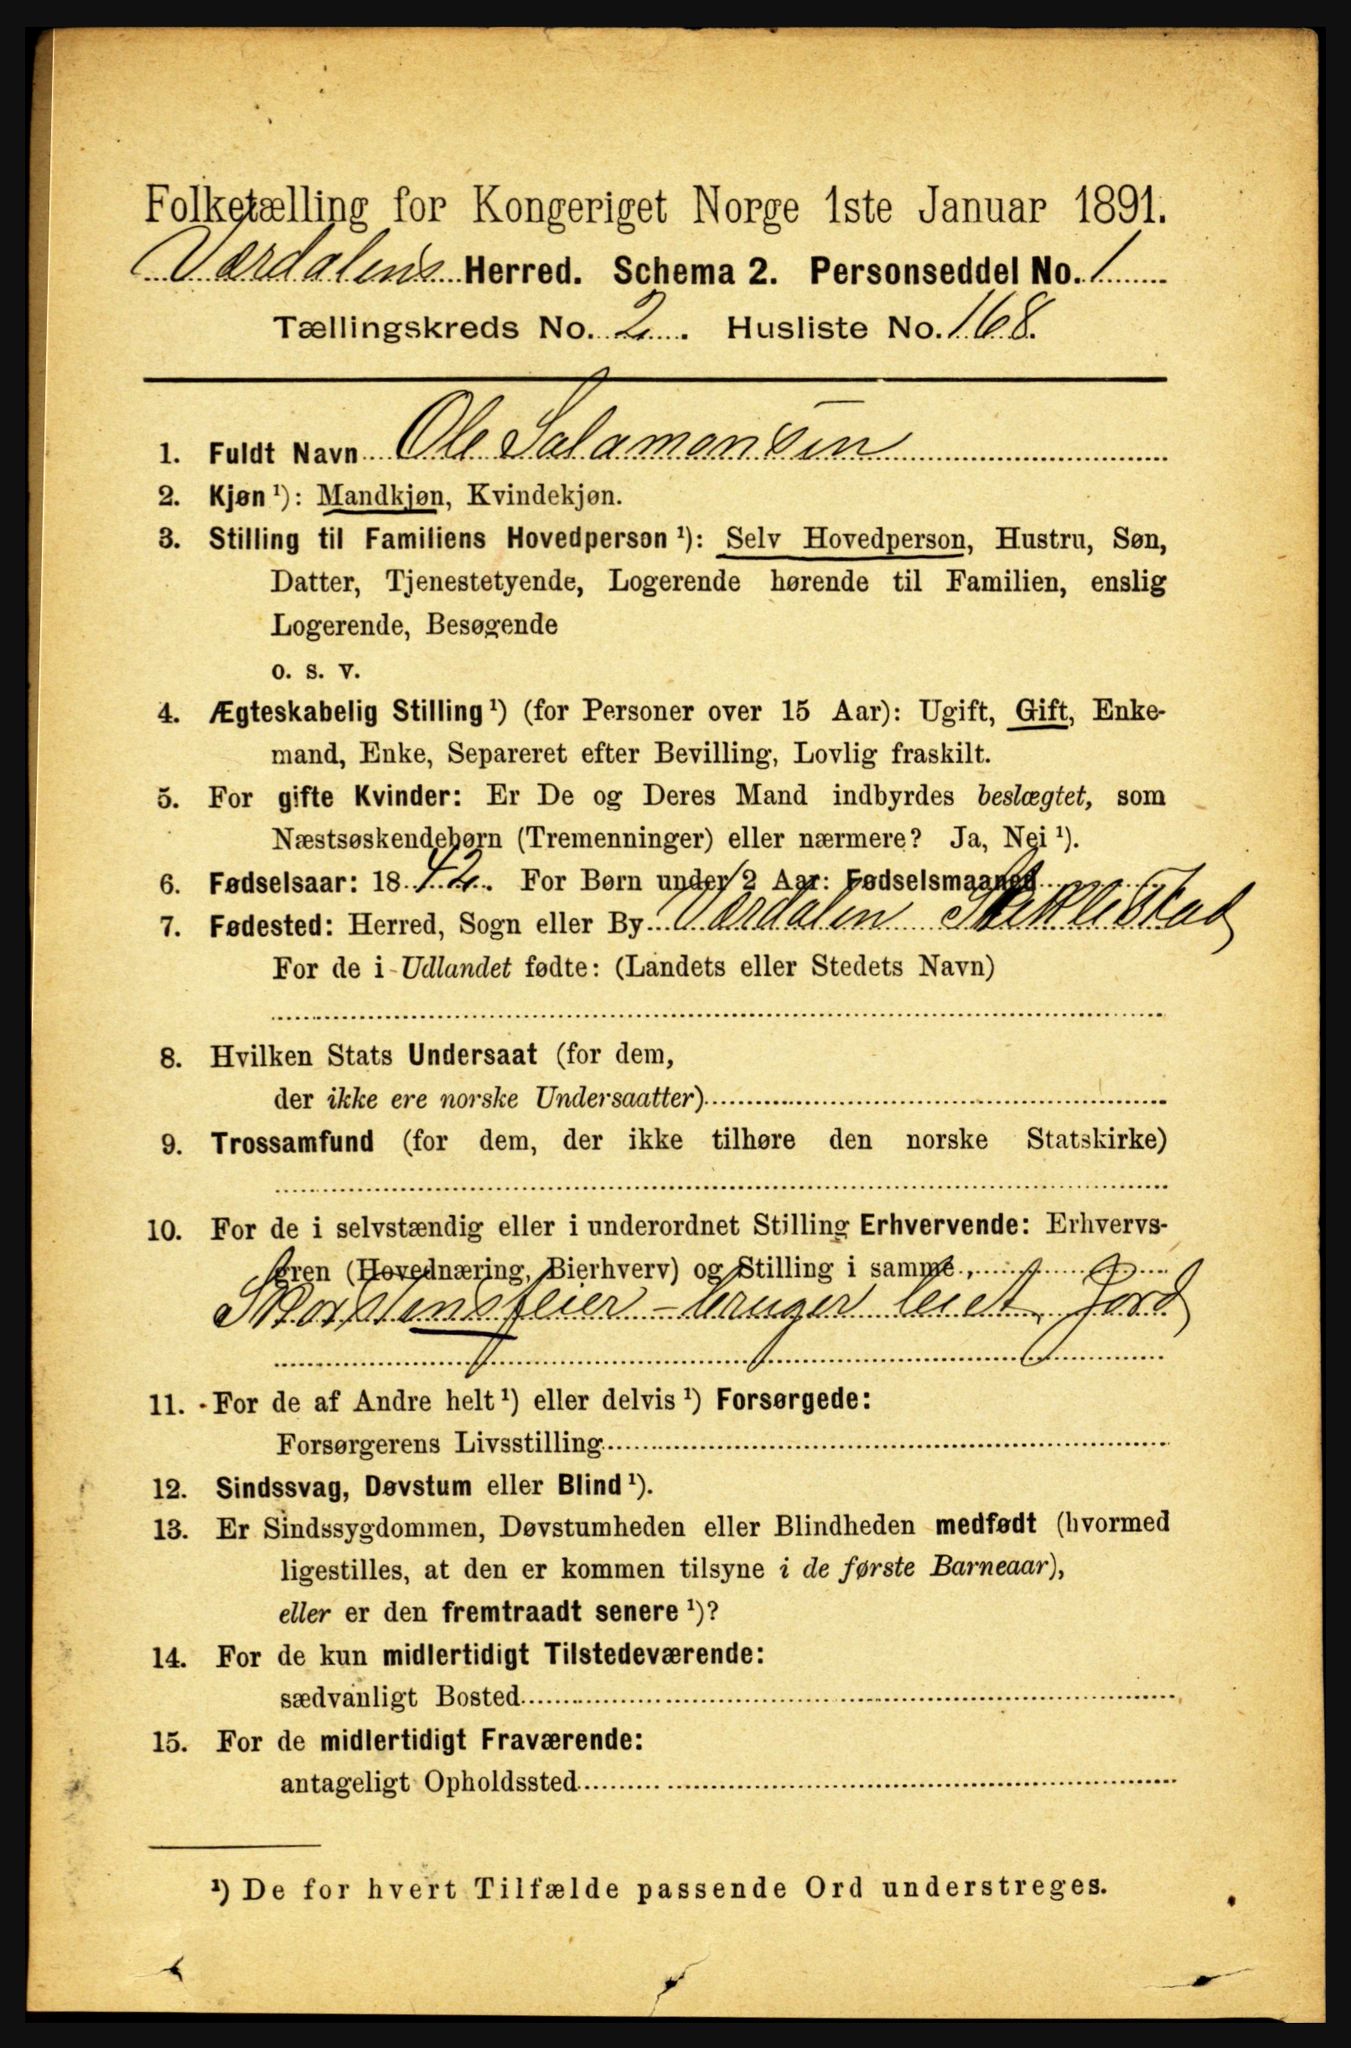 Folketælling for Kongeriget Norge 1ste Januar 1891.
Værdalens Herred. Schema 2. Personseddel No. 1
Tællingskreds No. 2. Husliste No. 168.
1. Fuldt Navn Ole Salamonsen
2. Kjøn ¹): Mandkjøn, Kvindekjøn.
3. Stilling til Familiens Hovedperson ¹): Selv Hovedperson, Hustru, Søn,
Datter, Tjenestetyende, Logerende hørende til Familien, enslig
Logerende, Besøgende
o. s. v.
4. Ægteskabelig Stilling ¹) (for Personer over 15 Aar): Ugift, Gift, Enke-
mand, Enke, Separeret efter Bevilling, Lovlig fraskilt.
5. For gifte Kvinder: Er De og Deres Mand indbyrdes beslægtet, som
Næstsøskendebørn (Tremenninger) eller nærmere? Ja, Nei ¹).
6. Fødselsaar: 1842. For Børn under 2 Aar: Fødselsmaaned
7. Fødested: Herred, Sogn eller By Værdalen Stiklestad
For de i Udlandet fødte: (Landets eller Stedets Navn)
8. Hvilken Stats Undersaat (for dem,
der ikke ere norske Undersaatter)
9. Trossamfund (for dem, der ikke tilhøre den norske Statskirke)
10. For de i selvstændig eller i underordnet Stilling Erhvervende: Erhvervs-
gren (Hovednæring, Bierhverv) og Stilling i samme
Skorstensfeier - bruger leiet Jord
11. For de af Andre helt ¹) eller delvis ¹) Forsørgede:
Forsørgerens Livsstilling
12. Sindssvag, Døvstum eller Blind ¹).
13. Er Sindssygdommen, Døvstumheden eller Blindheden medfødt (hvormed
ligestilles, at den er kommen tilsyne i de første Barneaar),
eller er den fremtraadt senere ¹)?
14. For de kun midlertidigt Tilstedeværende:
sædvanligt Bosted
15. For de midlertidigt Fraværende:
antageligt Opholdssted
¹) De for hvert Tilfælde passende Ord understreges.